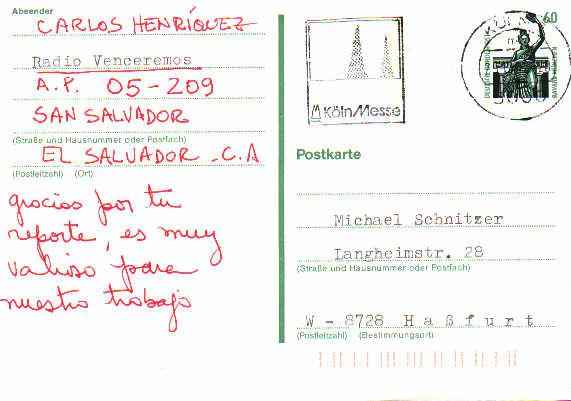 Absender
CARLOS HENRÍQUEZ
Radio Venceremos
A.P. 05-209
SAN SALVADOR
(Straße und Hausnummer oder Postfach)
EL SALVADOR - C.A
(Postleitzahl) (Ort)
gracias por tu
reporte, es muy
valioso para
nuestro trabajo
KölnMesse
KÖLN
60
DEUTSCHE BUNDESPOST
BAVARIA MÜNCHEN
Postkarte
Michael Schnitzer
Langheimstr. 28
(Straße und Hausnummer oder Postfach)
W - 8728 H a ß f u r t
(Postleitzahl) (Bestimmungsort)